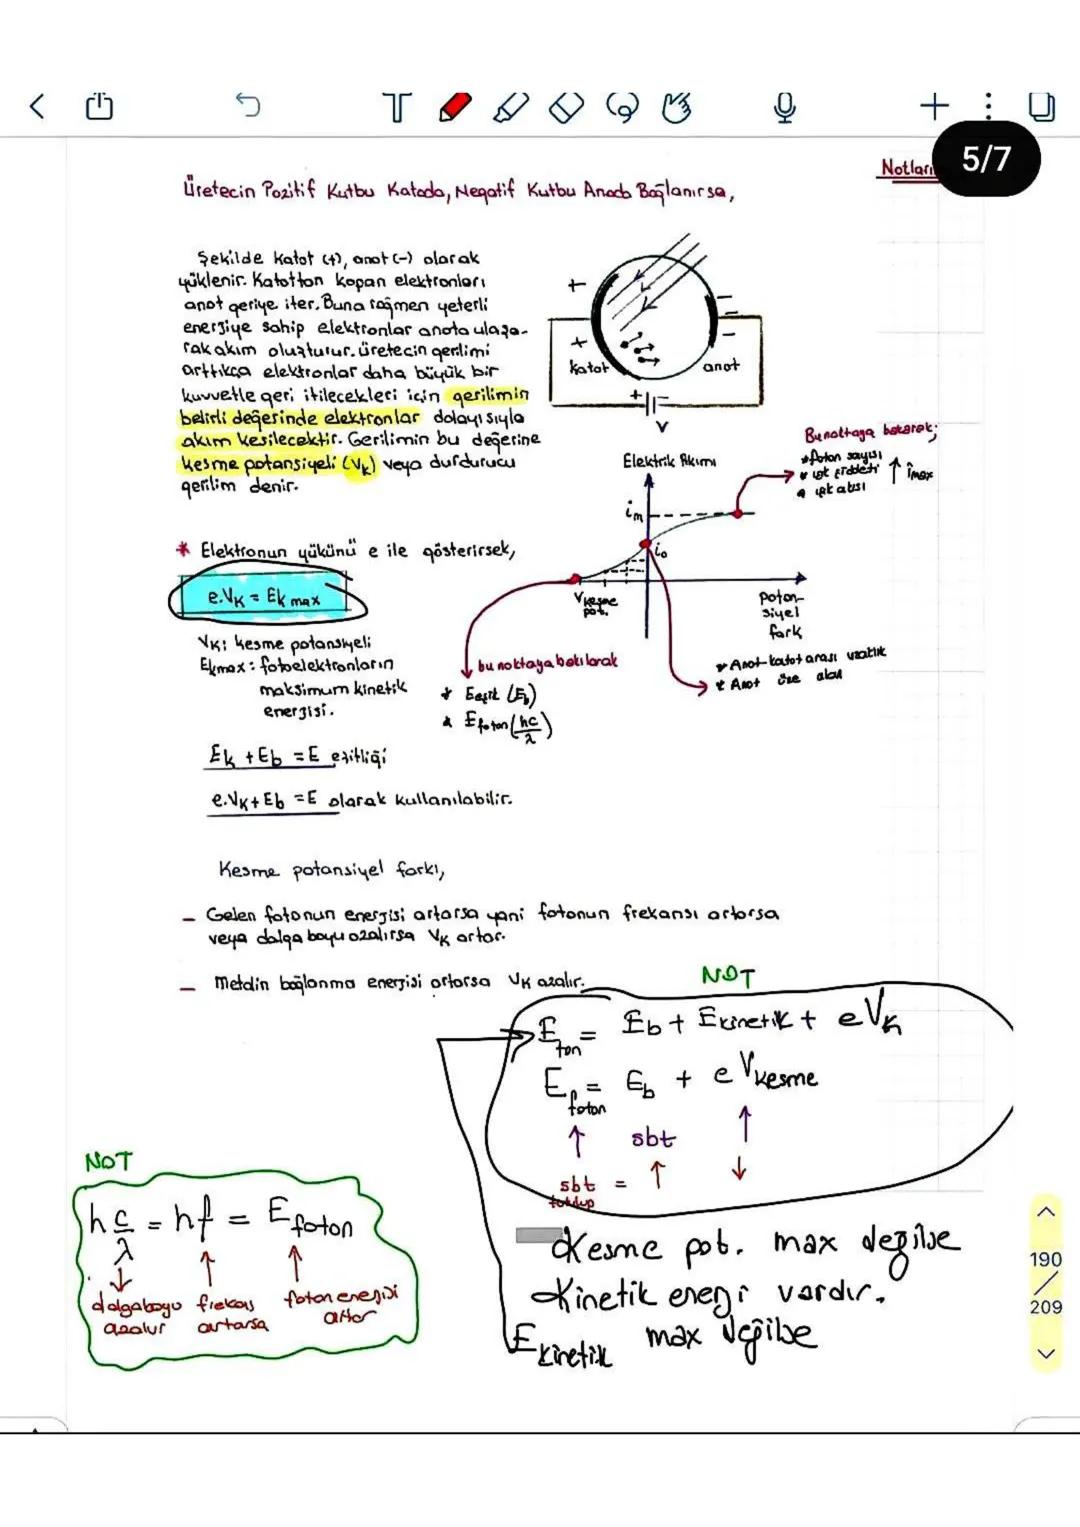 5/7
Notları
Üretecin Pozitif Kutbu Katoda, Negatif Kutbu Anoda Bağlanırsa,
Şekilde katot (+), anot (-) olarak
yüklenir. Katottan kopan elektronları
anot geriye iter. Buna rağmen yeterli
enerjiye sahip elektronlar anota ulaşa-
rak akım oluşturur. Üretecin gerilimi
arttıkça elektronlar daha büyük bir
kuvvetle geri itilecekleri için gerilimin
belirli değerinde elektronlar dolayısıyla
akım kesilecektir. Gerilimin bu değerine
kesme potansiyeli (Vk) veya durdurucu
gerilim denir.
+
+
katot
anot
+
V
Elektrik Akımı
im
io
Vkesme
pot.
Potan-
siyel
fark
Bu noktaya bakarak;
* foton sayısı
* ışık şiddeti ↑ imax
* ışık akısı
* Elektronun yükünü e ile gösterirsek,
e.Vk = Ek max
Vk: kesme potansiyeli
Ekmax: fotoelektronların
maksimum kinetik
enerjisi.
bu noktaya bakılarak
* Eeşik (Eb)
* Efoton (hc/λ)
* Anot-katot arası uzaklık
* Anot yüze alan
Ek + Eb = E eşitliği
e.Vk + Eb = E olarak kullanılabilir.
Kesme potansiyel farkı,
- Gelen fotonun enerjisi artarsa yani fotonun frekansı artarsa
veya dalga boyu azalırsa Vk artar.
- Metalin bağlanma enerjisi artarsa Vk azalır.
NOT
Eton = Eb + Ekinetik + eVk
Efoton = Eb + eVkesme
↑ sbt ↑
sbt = ↑ ↓
tutulup
NOT
h c/λ = hf = Efoton
↓ ↑ ↑
dalgaboyu frekans foton enerjisi
azalır artarsa artar
Kesme pot. max değilse
Kinetik enerji vardır.
Ekinetik max değilse
190
209